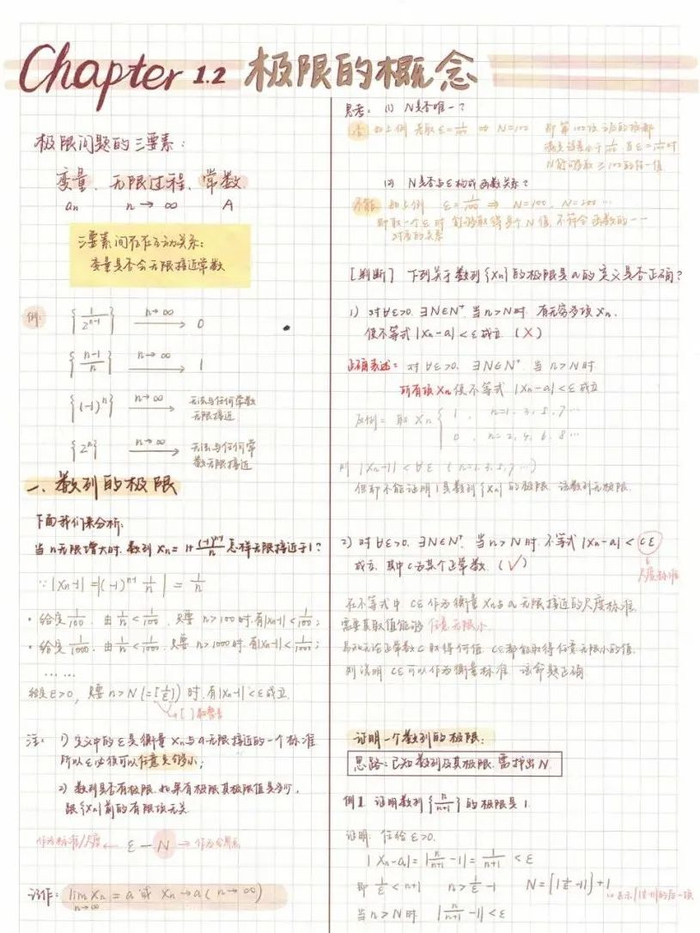 Chapter 1.2 极限的概念
极限问题的三要素:
变量、无限过程、常数
an n→∞ A
三要素间存在互动关系:
变量是否会无限接近常数
例: {1/2^(n-1)} n→∞ 0
{(n-1)/n} n→∞ 1
{(-1)^n} n→∞ 无法与任何常数
无限接近
{2^n} n→∞ 无法与任何常
数无限接近
一、数列的极限
下面我们来分析:
当n无限增大时,数列 Xn = 1+(-1)^(n+1)/n 怎样无限接近于1?
∵ |Xn-1| = |(-1)^(n+1) 1/n| = 1/n
· 给定 1/100,由 1/n < 1/100,只要 n>100时,有|Xn-1|<1/100;
· 给定 1/1000,由 1/n < 1/1000,只要 n>1000时,有|Xn-1|<1/1000;
……
ε>0,只要 n>N(=[1/ε])时,有|Xn-1|<ε成立
[ ]取整
注: 1) 定义中的ε是衡量Xn与a无限接近的一个标准
所以ε必须可以任意足够小;
2) 数列是否有极限,如果有极限其极限值是多少,
跟{Xn}前的有限项无关
作为标准/尺度 ← ε — N →
记作: lim Xn = a 或 Xn→a (n→∞)
n→∞
思考: (1) N是否唯一?
⇒ N=100
(2) N是否与ε构成函数关系?
不能 如上例 ⇒ N=100, N=200 …
即取一个ε时 能够取得多个N值,不符合函数的一一
对应的关系
[判断] 下列关于数列{Xn}的极限是a的定义是否正确?
1) 对∀ε>0, ∃N∈N⁺ 当n>N时 有无穷多项Xn,
使不等式|Xn-a|<ε成立 (X)
正确表述: 对∀ε>0, ∃N∈N⁺, 当n>N时
所有项Xn使不等式 |Xn-a|<ε成立
反例: 取Xn { 1, n=1,3,5,7…
0, n=2,4,6,8…
则 |Xn-1|<∀ε (n=1,3,5,7…)
但却不能证明1是数列{Xn}的极限 该数列无极限
2) 对∀ε>0, ∃N∈N⁺, 当n>N时, 不等式|Xn-a|<cε
成立, 其中c为某个正常数 (√)
尺度标准
在不等式中 cε作为衡量Xn与a无限接近的尺度标准
需要其取值能够 任意无限小
无论正常数c取得何值 cε都能取得任意无限小的值
则说明 cε可以作为衡量标准 该命题正确
证明一个数列的极限:
思路: 已知数列及其极限,需找出N
例1. 证明数列{n/(n+1)}的极限是1
证明: 任给ε>0.
|Xn-a| = |n/(n+1) -1| = 1/(n+1) < ε
即 1/ε < n+1 n > 1/ε -1 N=[|1/ε -1|]+1
当n>N时 |n/(n+1) -1|<ε